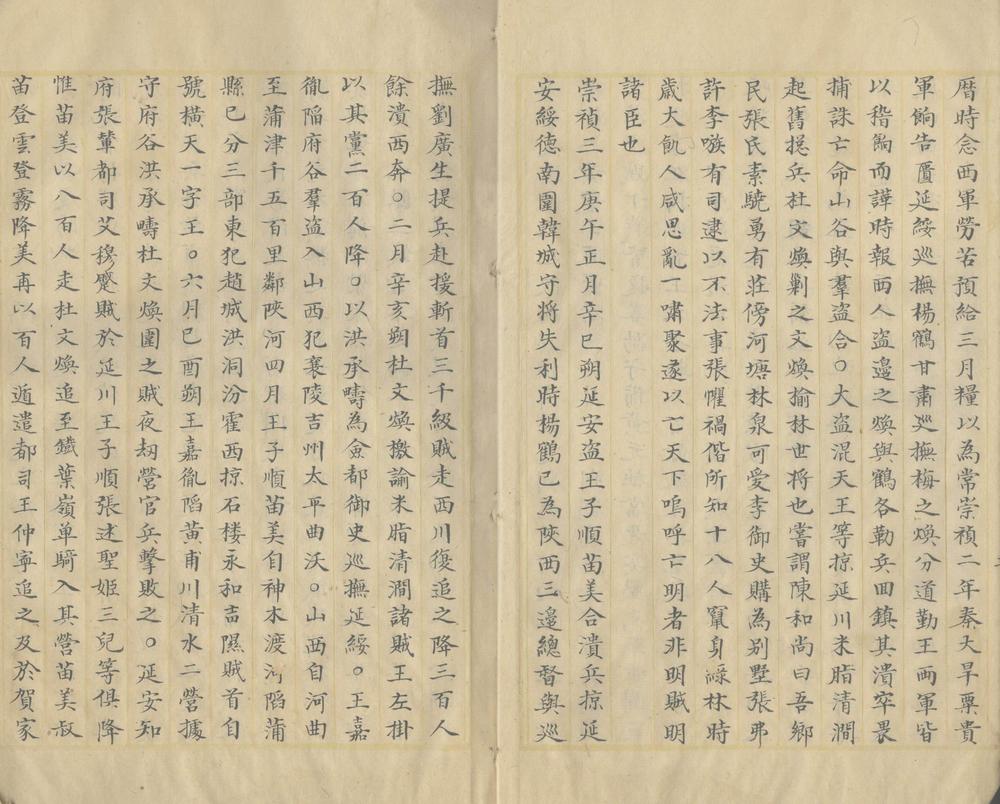 曆時念西軍勞苦預給三月糧以為常崇禎二年秦大旱粟貴
軍餉告匱延綏巡撫楊鶴甘肅巡撫梅之煥分道勤王兩軍皆
以稽餉而譁時報西人盜邊之煥與鶴各勒兵回鎮其潰卒畏
捕誅亡命山谷與羣盜合○大盜混天王等掠延川米脂清澗
起舊摠兵杜文煥剿之文煥揄林世將也嘗謂陳和尚曰吾鄉
民張氏素驍勇有莊傍河塘林泉可愛李御史購為别墅張弗
許李嗾有司逮以不法事張懼禍偕所知十八人竄身綠林時
歲大飢人咸思亂一嘯聚遂以亡天下嗚呼亡明者非明賊明
諸臣也
崇禎三年庚午正月辛巳朔延安盜王子順苗美合潰兵掠延
安綏德南圍韓城守將失利時楊鶴已為陝西三邊總督與巡
撫劉廣生提兵赴援斬首三千級賊走西川復追之降三百人
餘潰西奔○二月辛亥朔杜文煥檄諭米脂清澗諸賊王左掛
以其黨二百人降○以洪承疇為僉都御史巡撫延綏○王嘉
胤陷府谷羣盜入山西犯襄陵吉州太平曲沃○山西自河曲
至蒲津千五百里鄰陝河四月王子順苗美自神木渡河陷蒲
縣已分三部東犯趙城洪洞汾霍西掠石楼永和吉隰賊首自
號橫天一字王○六月已酉朔王嘉胤陷黃甫川清水二營據
守府谷洪承疇杜文煥圍之賊夜刼營官兵擊敗之○延安知
府張輦都司艾穆蹙賊於延川王子順張述聖姬三兒等俱降
惟苗美以八百人走杜文煥追至鐵葉嶺单騎入其營苗美叔
苗登雲登霧降美再以百人遁遣都司王仲寧追之及於賀家